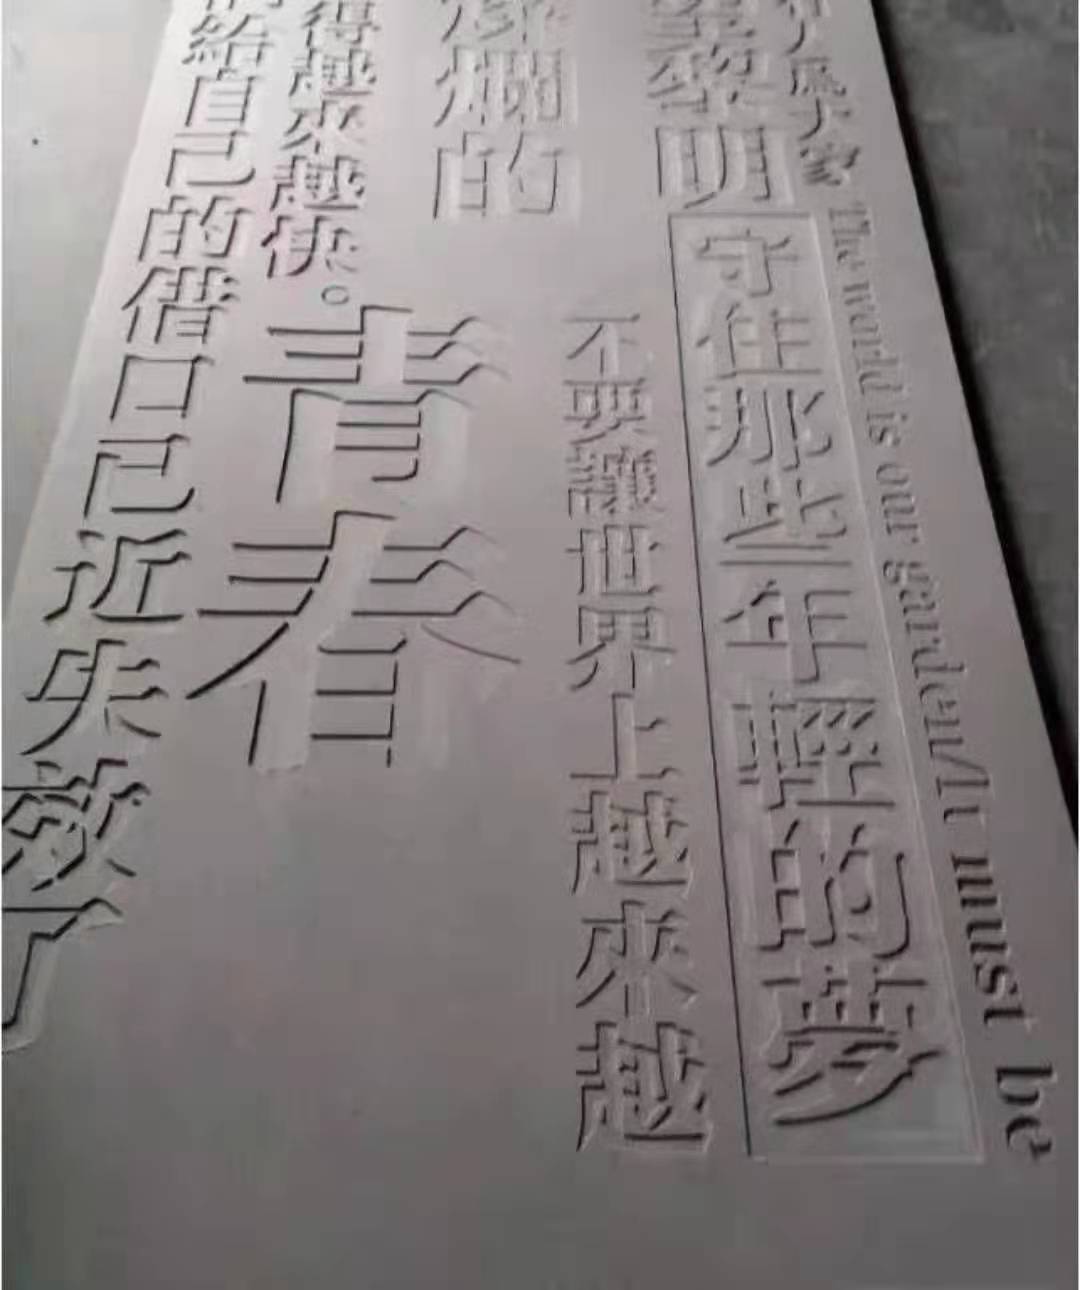 為大家
The world is our garden/It must be
黎明
守住那些年輕的夢
不要讓世界上越來越
燦爛的
青春
得越來越快。
給自己的借口已近失效了